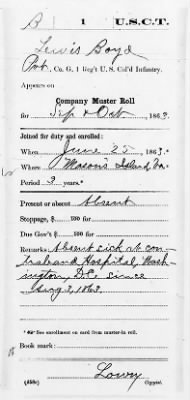 B 1 U.S.C.T.
Lewis Boyd
Pvt, Co. G, 1 Reg't U. S. Col'd Infantry.
Appears on
Company Muster Roll
for Sep & Oct, 1863.
Joined for duty and enrolled:
When June 25, 1863.
Where Mason's Island, Va.
Period 3 years.*
Present or absent Absent
Stoppage, $ 100 for
Due Gov't $ 100 for
Remarks: Absent sick at con-
traband Hospital, Wash-
ington, D.C. since
Aug 2, 1863.
*See enrollment on card from muster-in roll.
Book mark:
Lowry
(358c) Copyist.